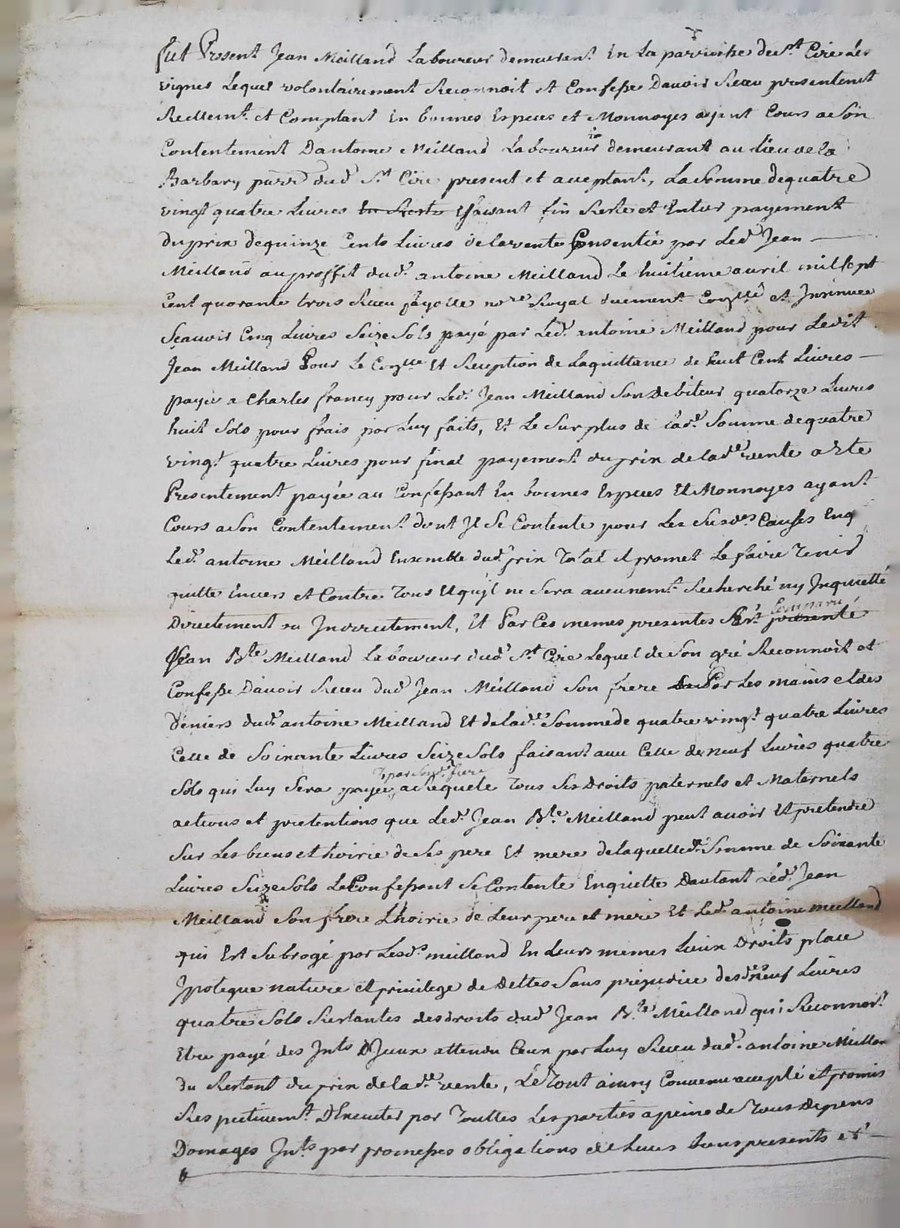 fut Present Jean Meilland Laboureur demeurant En La parroisse de st Cire Les
vignes Lequel volontairement Reconnoit et Confesse Davoir Receu presentement
Reellemt et Comptant En bonnes Especes et Monnoyes ayant Cours a Son
Contentement Dantoine Meilland Laboureur demeurant au Lieu de la
Barbary parr dud st Cire present et acceptant, La Somme de quatre
vingt quatre Livres En Reste faisant fin Reste et Entier payement
du prix de quinze Cents Livres de la vente Consentie par Led Jean
Meilland au proffit dud antoine Meilland Le huitieme avril mil sept
Cent quarante trois Receu fayolle nore Royal duement Conllé et Insinuee
Scavoir Cinq Livres Seize Sols payé par Led antoine Meilland pour Ledit
Jean Meilland Pour Le Conlle Et Reception de La quittance de huit Cent Livres
payée a Charles francy pour Led Jean Meilland Son Debiteur quatorze Livres
huit Sols pour frais par Luy faits, Et Le Surplus de lad Somme de quatre
vingt quatre Livres pour final payement du prix de lade vente a Ete
Presentement payée au Confessant En bonnes Especes Et Monnoyes ayant
Cours a Son Contentement dont Il Se Contente pour Les Susdes Causes Enq
Led antoine Meilland Ensemble dud prix Total Il promet Le faire Tenir
quitte Envers et Contre Tous Et quil ne Sera aucunemt Recherché ny Inquietté
Directement ou Indirectement, Et Par Ces memes presentes S'est presenté Comparu
Jean Bte Meilland Laboureur dud st Cire Lequel de Son gré Reconnoit et
Confesse Davoir Receu dud Jean Meilland Son frere Par Les mains et des
Deniers dud antoine Meilland Et de lade Somme de quatre vingt quatre Livres
Celle de Soixante Livres Seize Sols faisant avec Celle de neuf Livres quatre
Sols qui Luy Sera payée par Sond frere Tous Ses Droits paternels et Maternels
actions et pretentions que Led Jean Bte Meilland peut avoir Et pretendre
Sur Les biens et hoirie de Ses pere Et mere de laquelle Somme de Soixante
Livres Seize Sols Le Confessant Se Contente Enquitte Dautant Led Jean
Meilland Son frere Lhoirie de Leur pere et mere Et Led antoine meilland
qui Est Subrogé par Lesd meilland En Leurs memes Lieux Droits place
Ipoteque nature et privilege de Dettes Sans prejudice desd neuf Livres
quatre Sols Restantes des droits dud Jean Bte Meilland qui Reconnoit
Etre payé des Ints D'Iceux attendu Ceux par Luy Receu dud antoine Meilland
du Restant du prix de lade vente, Le Tout ainsy Convenu accepté et promis
Respectivemt D'Executer par Touttes Les parties a peine de Tous Depens
Domages Ints par promesses obligations de Leurs biens presents et